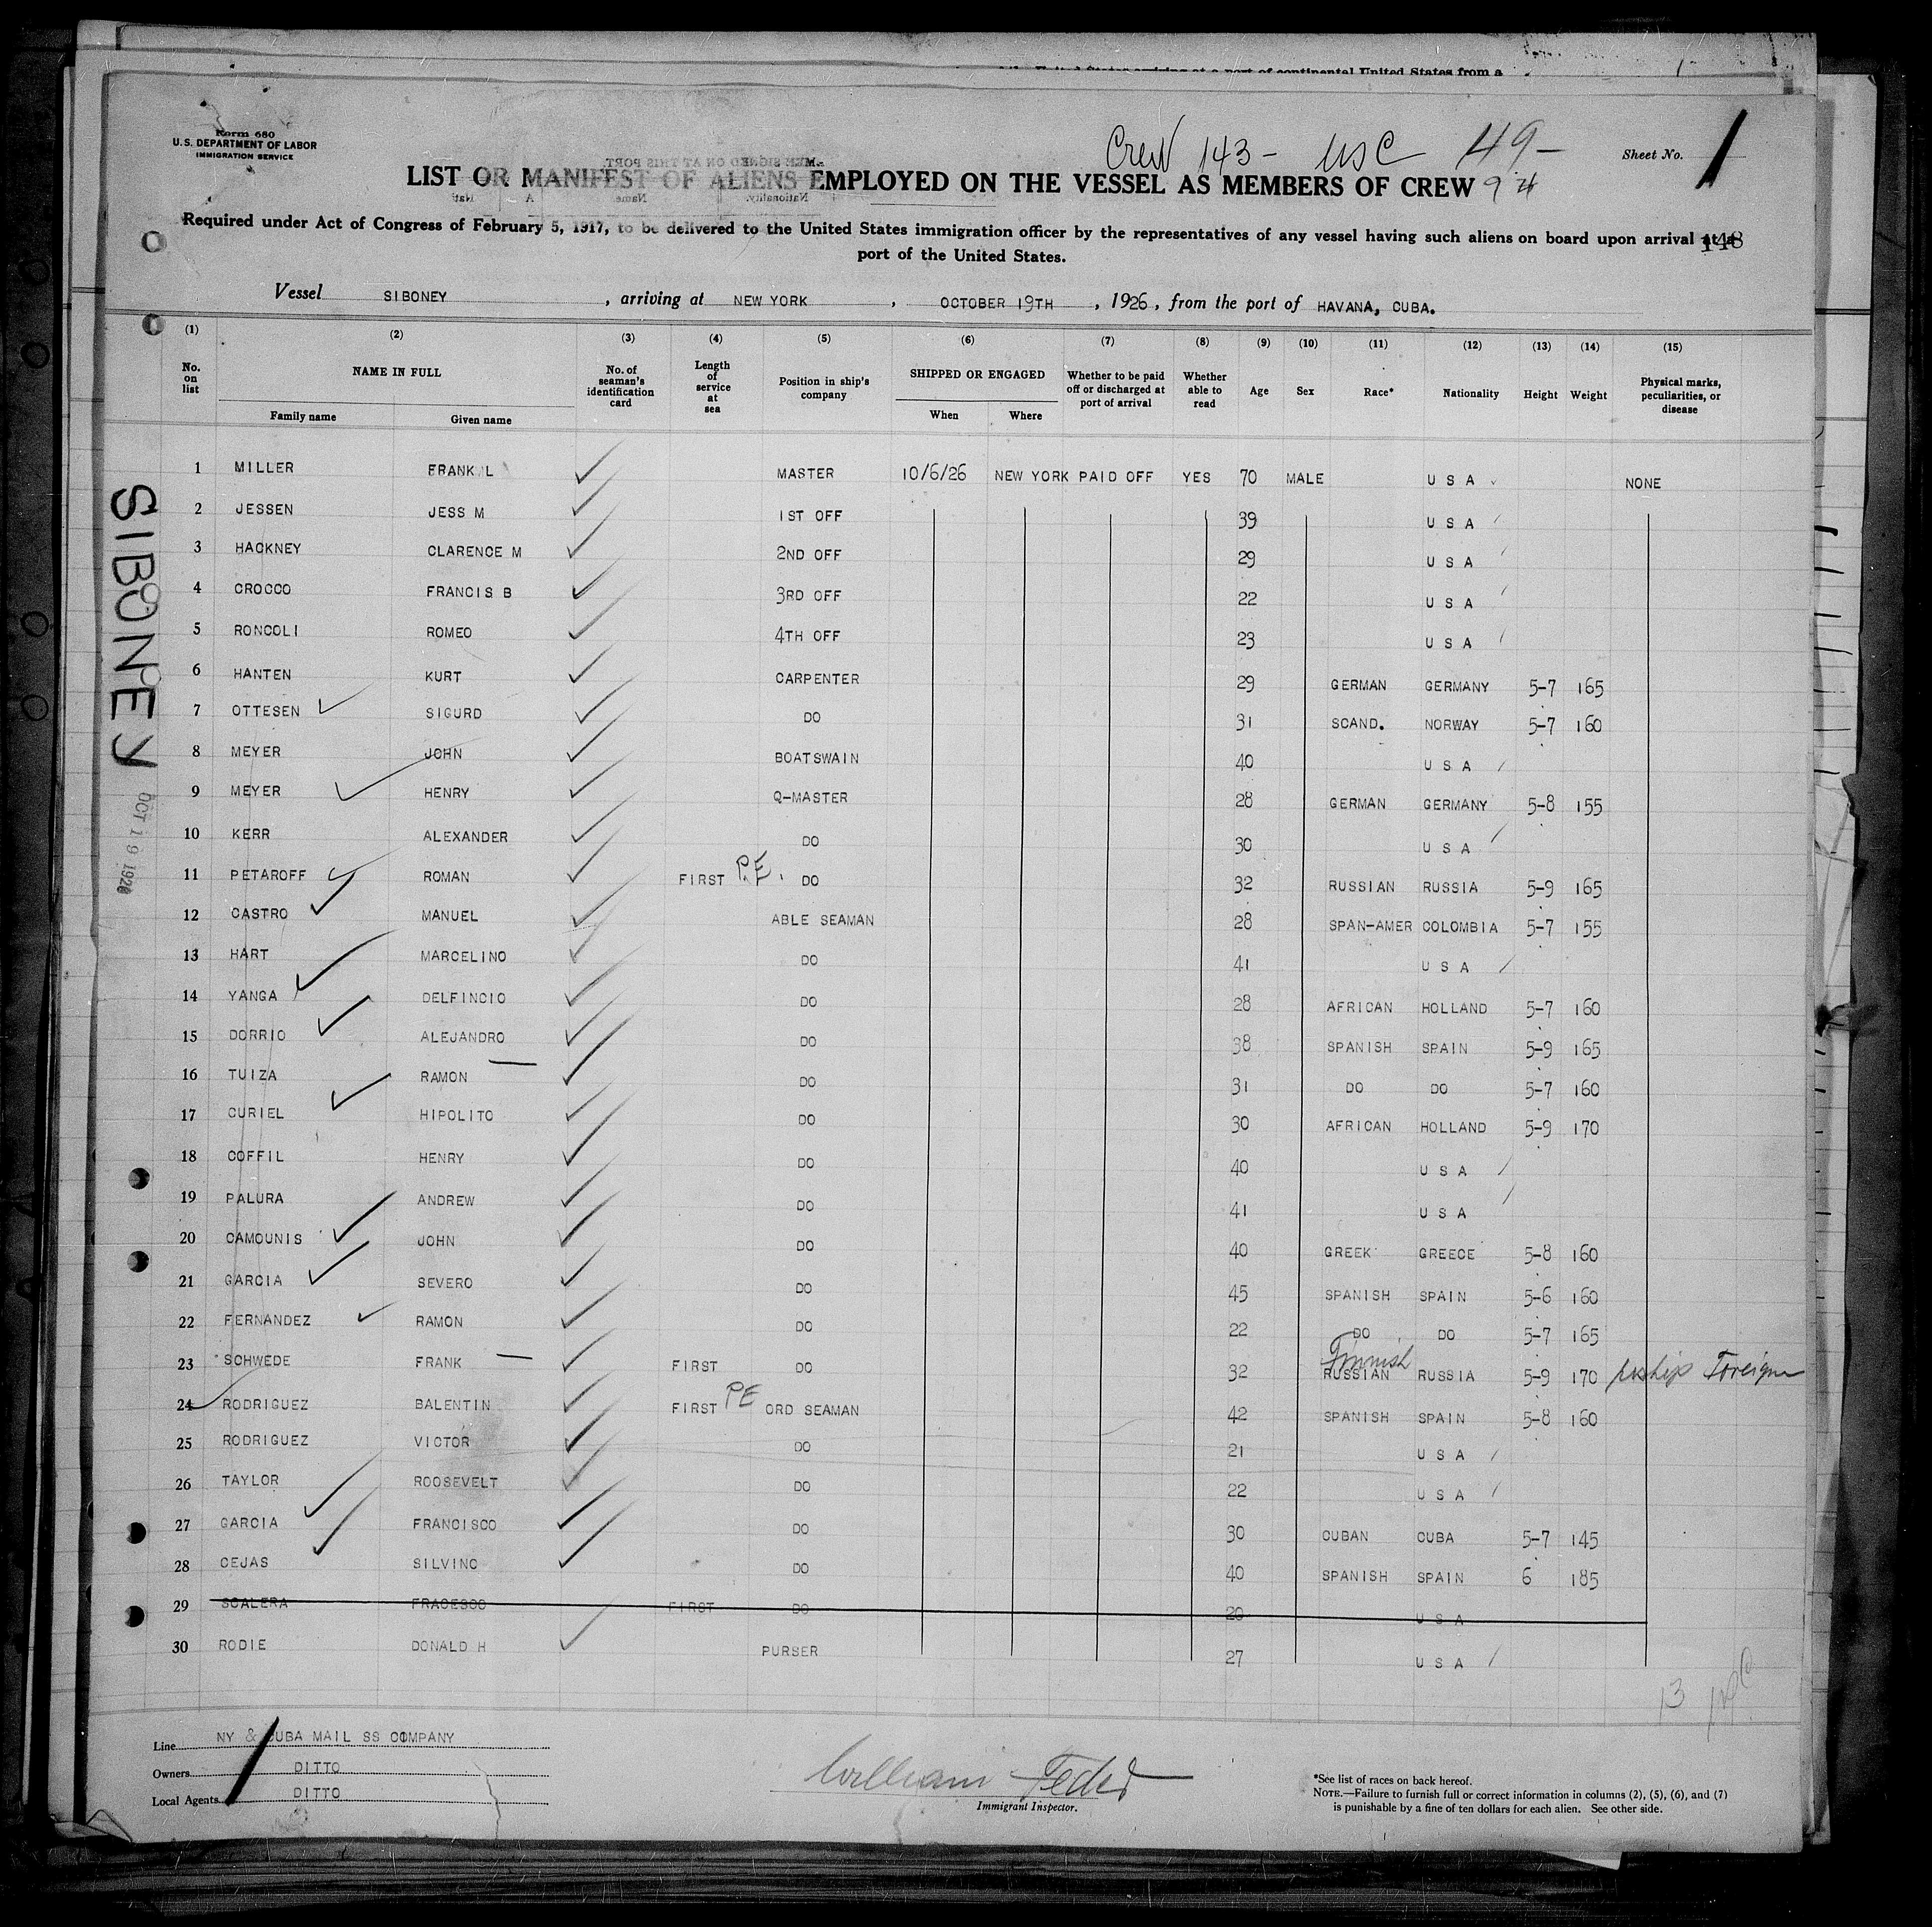 the United States arriving at a port of continental United States from a
Form 680
U.S. DEPARTMENT OF LABOR
IMMIGRATION SERVICE
Crew 143 - USC 49 -
94
Sheet No. 1
LIST OR MANIFEST OF ALIENS EMPLOYED ON THE VESSEL AS MEMBERS OF CREW
Required under Act of Congress of February 5, 1917, to be delivered to the United States immigration officer by the representatives of any vessel having such aliens on board upon arrival at a
148
port of the United States.
Vessel SIBONEY, arriving at NEW YORK, OCTOBER 19TH, 1926, from the port of HAVANA, CUBA.
(1) (2) (3) (4) (5) (6) (7) (8) (9) (10) (11) (12) (13) (14) (15)
No. on list NAME IN FULL Family name Given name No. of seaman's identification card Length of service at sea Position in ship's company SHIPPED OR ENGAGED When Where Whether to be paid off or discharged at port of arrival Whether able to read Age Sex Race* Nationality Height Weight Physical marks, peculiarities, or disease
1 MILLER FRANK L MASTER 10/6/26 NEW YORK PAID OFF YES 70 MALE U S A NONE
2 JESSEN JESS M 1ST OFF 39 U S A
3 HACKNEY CLARENCE M 2ND OFF 29 U S A
4 CROCCO FRANCIS B 3RD OFF 22 U S A
5 RONCOLI ROMEO 4TH OFF 23 U S A
6 HANTEN KURT CARPENTER 29 GERMAN GERMANY 5-7 165
7 OTTESEN SIGURD DO 31 SCAND. NORWAY 5-7 160
8 MEYER JOHN BOATSWAIN 40 U S A
9 MEYER HENRY Q-MASTER 28 GERMAN GERMANY 5-8 155
10 KERR ALEXANDER DO 30 U S A
11 PETAROFF ROMAN FIRST P.E. DO 32 RUSSIAN RUSSIA 5-9 165
12 CASTRO MANUEL ABLE SEAMAN 28 SPAN-AMER COLOMBIA 5-7 155
13 HART MARCELINO DO 41 U S A
14 YANGA DELFINCIO DO 28 AFRICAN HOLLAND 5-7 160
15 DORRIO ALEJANDRO DO 38 SPANISH SPAIN 5-9 165
16 TUIZA RAMON DO 31 DO DO 5-7 160
17 CURIEL HIPOLITO DO 30 AFRICAN HOLLAND 5-9 170
18 COFFIL HENRY DO 40 U S A
19 PALURA ANDREW DO 41 U S A
20 CAMOUNIS JOHN DO 40 GREEK GREECE 5-8 160
21 GARCIA SEVERO DO 45 SPANISH SPAIN 5-6 160
22 FERNANDEZ RAMON DO 22 DO DO 5-7 165
23 SCHWEDE FRANK FIRST DO 32 Finnish RUSSIAN RUSSIA 5-9 170 reship Foreign
24 RODRIGUEZ BALENTIN FIRST PE ORD SEAMAN 42 SPANISH SPAIN 5-8 160
25 RODRIGUEZ VICTOR DO 21 U S A
26 TAYLOR ROOSEVELT DO 22 U S A
27 GARCIA FRANCISCO DO 30 CUBAN CUBA 5-7 145
28 CEJAS SILVINO DO 40 SPANISH SPAIN 6 185
29 SCALERA FRACESCO FIRST DO 20 U S A
30 RODIE DONALD H PURSER 27 U S A
13
SIBONEY
OCT 19 1926
Line NY & CUBA MAIL SS COMPANY
Owners DITTO
Local Agents DITTO
William Feder
Immigrant Inspector.
*See list of races on back hereof.
NOTE.—Failure to furnish full or correct information in columns (2), (5), (6), and (7)
is punishable by a fine of ten dollars for each alien. See other side.